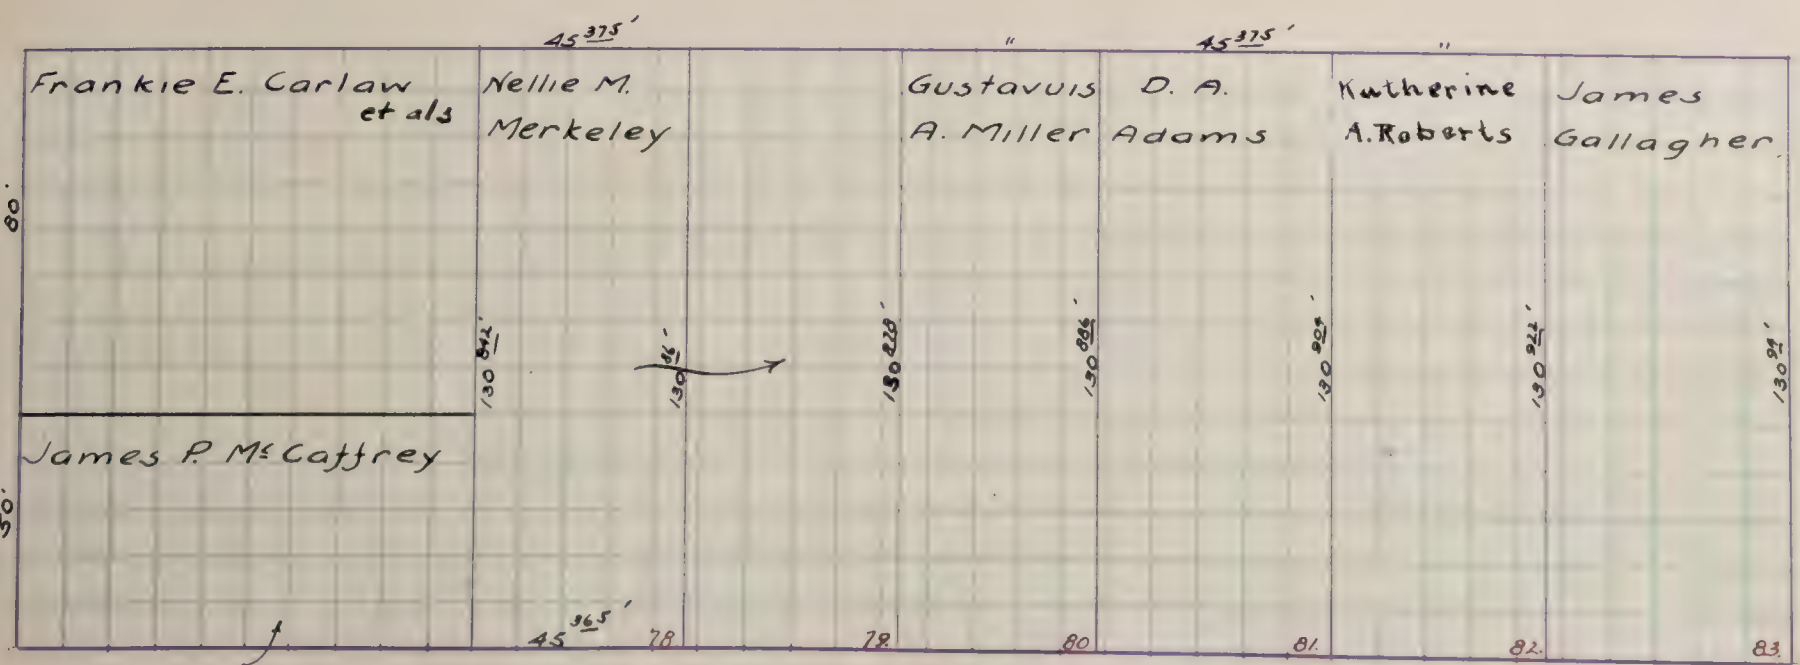 45 375'
"
45 375'
"
Frankie E. Carlaw
et als
Nellie M.
Merkeley
Gustavuis
A. Miller
D. A.
Adams
Katherine
A. Roberts
James
Gallagher.
80'
130 842'
130 86'
130 828'
130 886'
130 904'
130 922'
130 94'
James P. McCaffrey
50'
45 365'
78
79.
80
81.
82.
83.